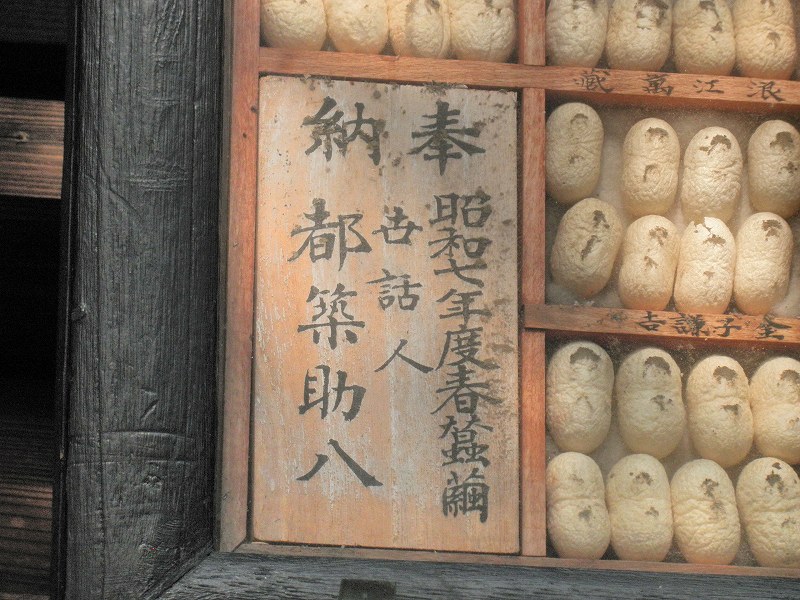 浪江萬藏
金子謙吉
奉納
昭和七年度春蠶繭
世話人
都築助八